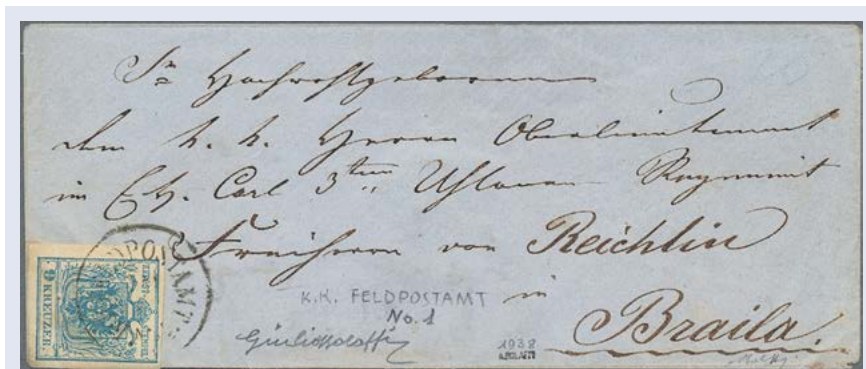 Sr Hochwohlgeboren
dem k. k. Herrn Oberlieutenant
im Eh. Carl 3ten Uhlanen Regiment
Freiherrn von Reichlin
in
Braila.
9 KREUZER.
K.K. FELDPOSTAMT
No. 1
1938